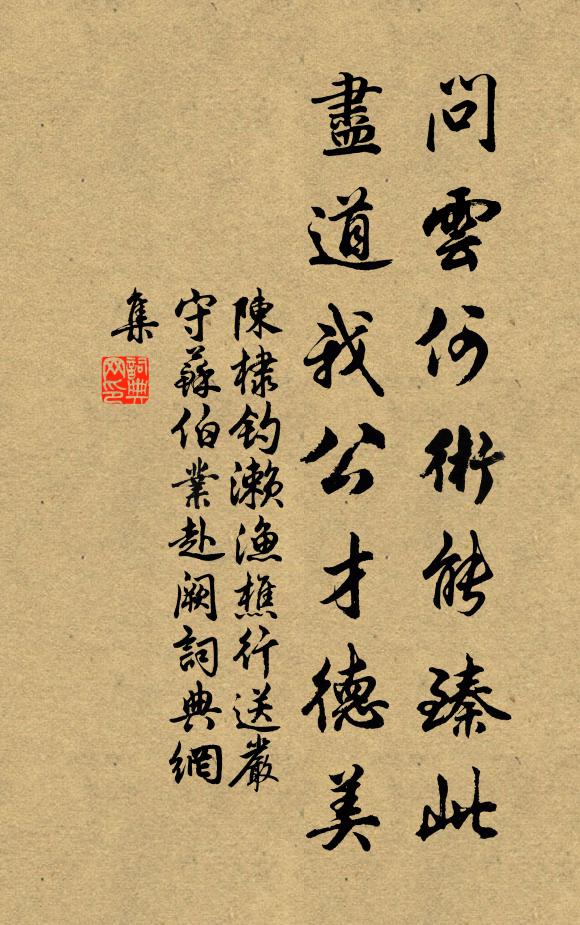 問雲何術能臻此
盡道我公才德美
陳棣釣瀨漁樵行送嚴
守蘇伯業赴闕詞典網
集
詞典
网印